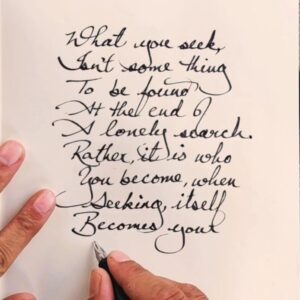 What you seek,
Isn't some thing
To be found
At the end of
A lonely search.
Rather, it is who
You become, when
Seeking, itself
Becomes your